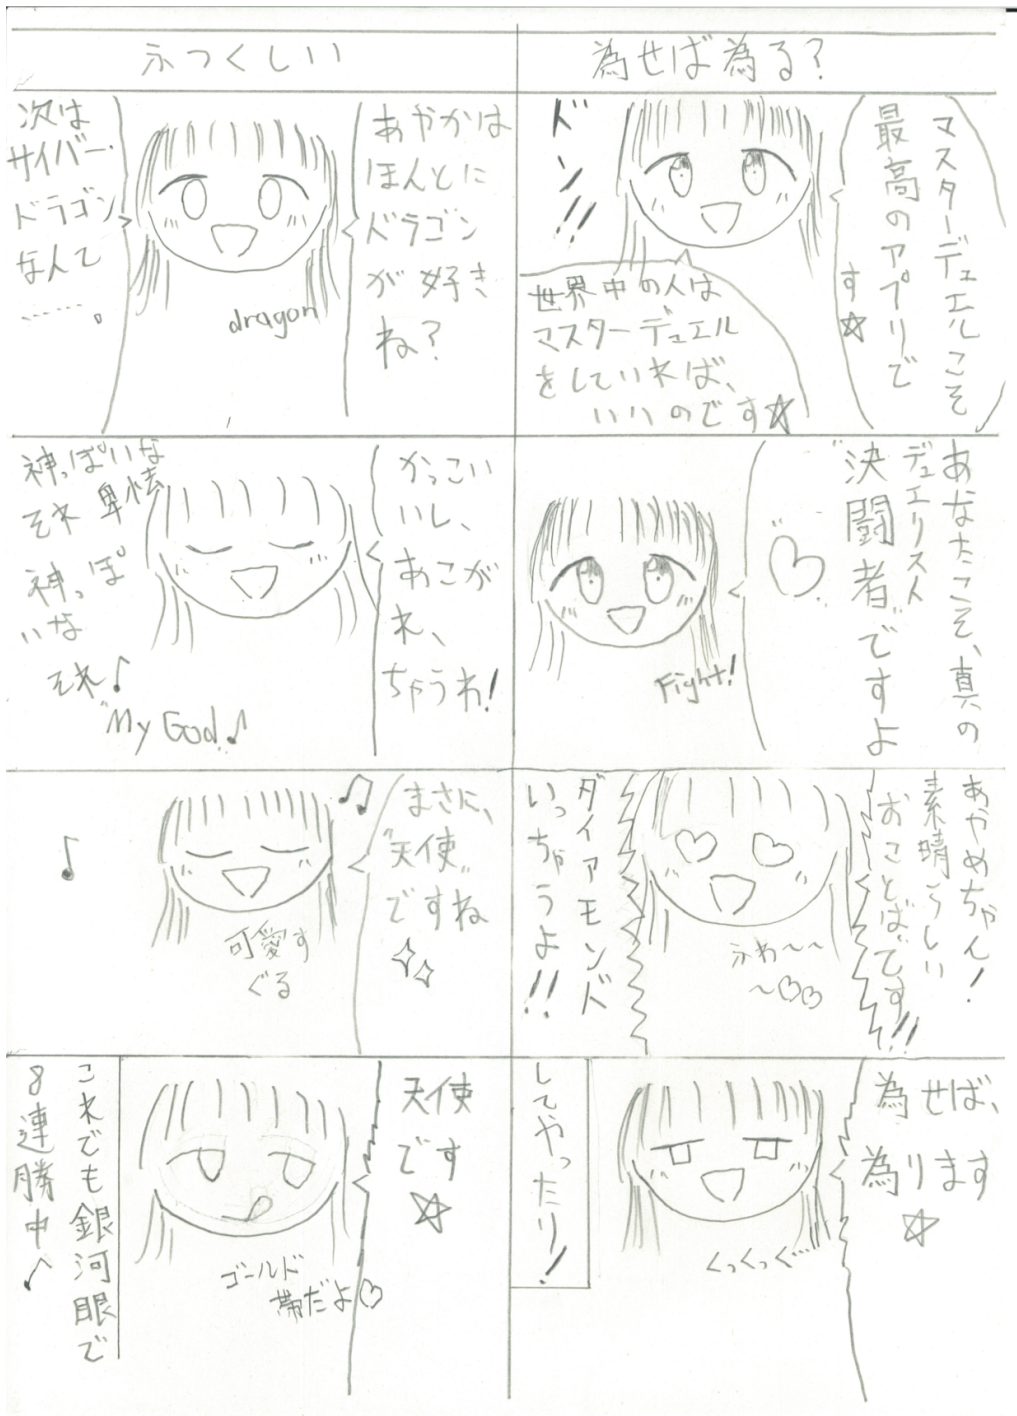 為せば為る?
マスターデュエルこそ
最高のアプリで
す☆
ドン!!
世界中の人は
マスターデュエル
をしていれば、
いいのです☆
あなたこそ、真の
デュエリスト
"決闘者"ですよ
"♡"
Fight!
あやめちゃん!
素晴らしい
おことばです!!
ふわ〜〜
〜♡♡
ダイアモンド
いっちゃうよ!!
為せば、
為ります
☆
くっくっく…
してやったり!
ふつくしい
あやかは
ほんとに
ドラゴン
が好き
ね?
dragon
次は
サイバー・
ドラゴン
なんて
……。
かっこい
いし、
あこが
れ、
ちゃうわ!
神っぽいな
それ 卑怯
神っぽ
いな
それ♪
"My God"♪
まさに、
"天使"
ですね
♫
可愛す
ぐる
♪
天使
です
☆
ゴールド
帯だよ♡
これでも銀河眼で
8連勝中♪